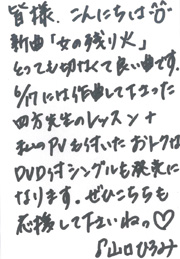 皆様、こんにちは
新曲「女の残り火」
とっても切なくて良い曲です。
6/17には作曲して下さった
四方先生のレッスン+
私のPVも付いたおトクな
DVD付シングルも発売に
なります。ぜひこちらも
応援して下さいねっ♡
♪山口ひろみ